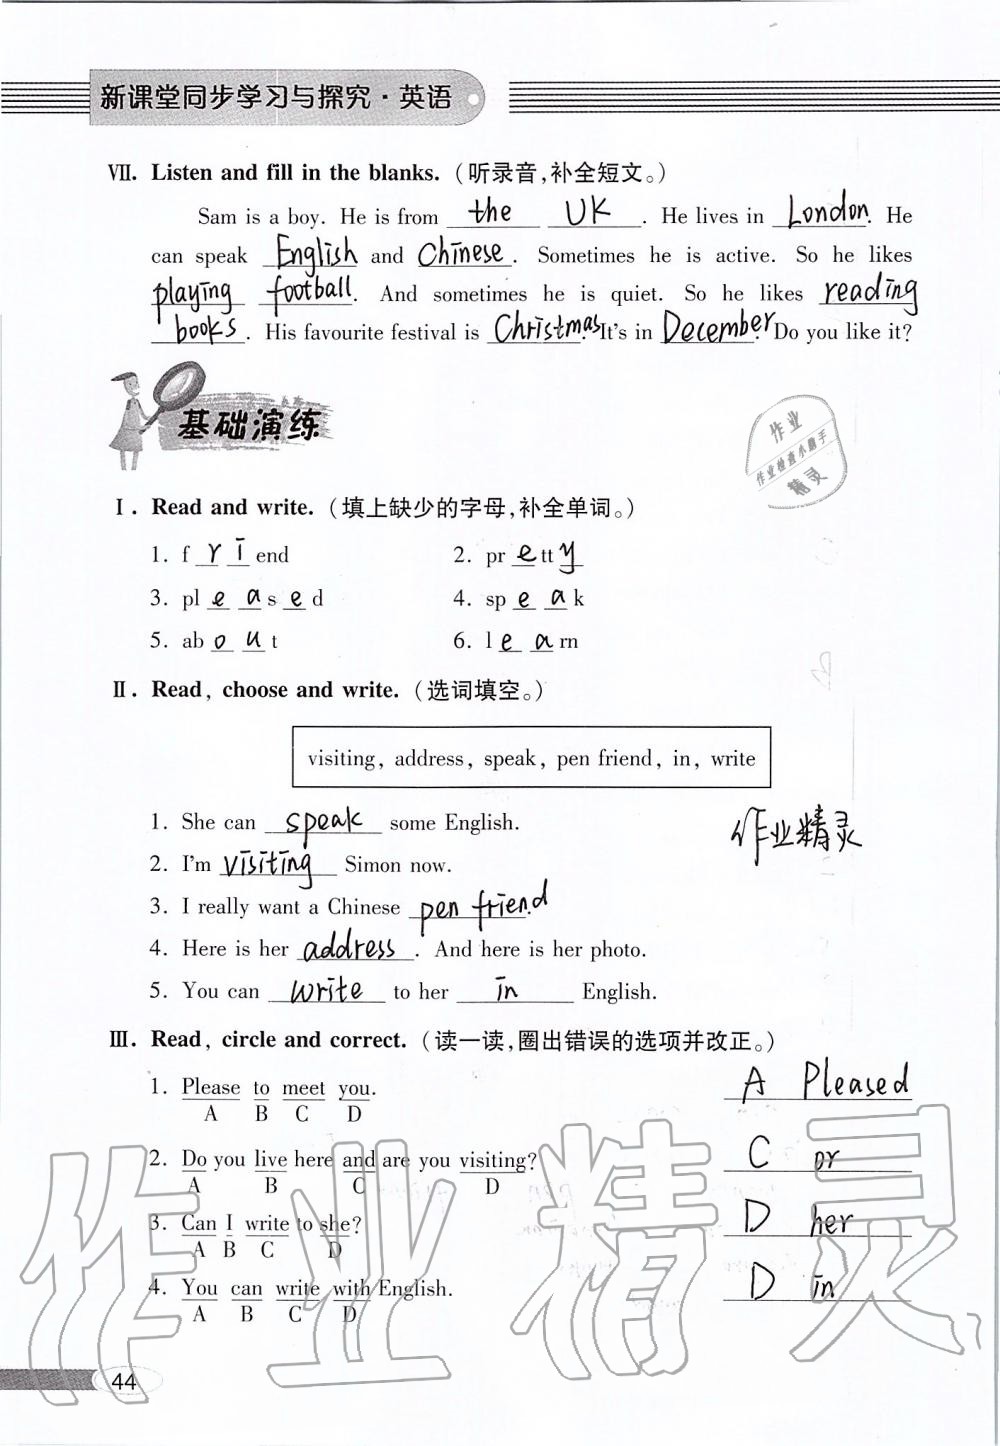 新课堂同步学习与探究·英语
Ⅶ. Listen and fill in the blanks. (听录音,补全短文。)
Sam is a boy. He is from the UK . He lives in London. He
can speak English and Chinese. Sometimes he is active. So he likes
playing football. And sometimes he is quiet. So he likes reading
books. His favourite festival is Christmas. It's in December. Do you like it?
基础演练
Ⅰ. Read and write. (填上缺少的字母,补全单词。)
1. f r i end 2. pr e tt y
3. pl e a s e d 4. sp e a k
5. ab o u t 6. l e a rn
Ⅱ. Read, choose and write. (选词填空。)
visiting, address, speak, pen friend, in, write
1. She can speak some English.
2. I'm visiting Simon now.
3. I really want a Chinese pen friend.
4. Here is her address. And here is her photo.
5. You can write to her in English.
Ⅲ. Read, circle and correct. (读一读,圈出错误的选项并改正。)
1. Please to meet you. A Pleased
A B C D
2. Do you live here and are you visiting? C or
A B C D
3. Can I write to she? D her
A B C D
4. You can write with English. D in
A B C D
44
作业
作业检查小助手
精灵
作业精灵
作业精灵